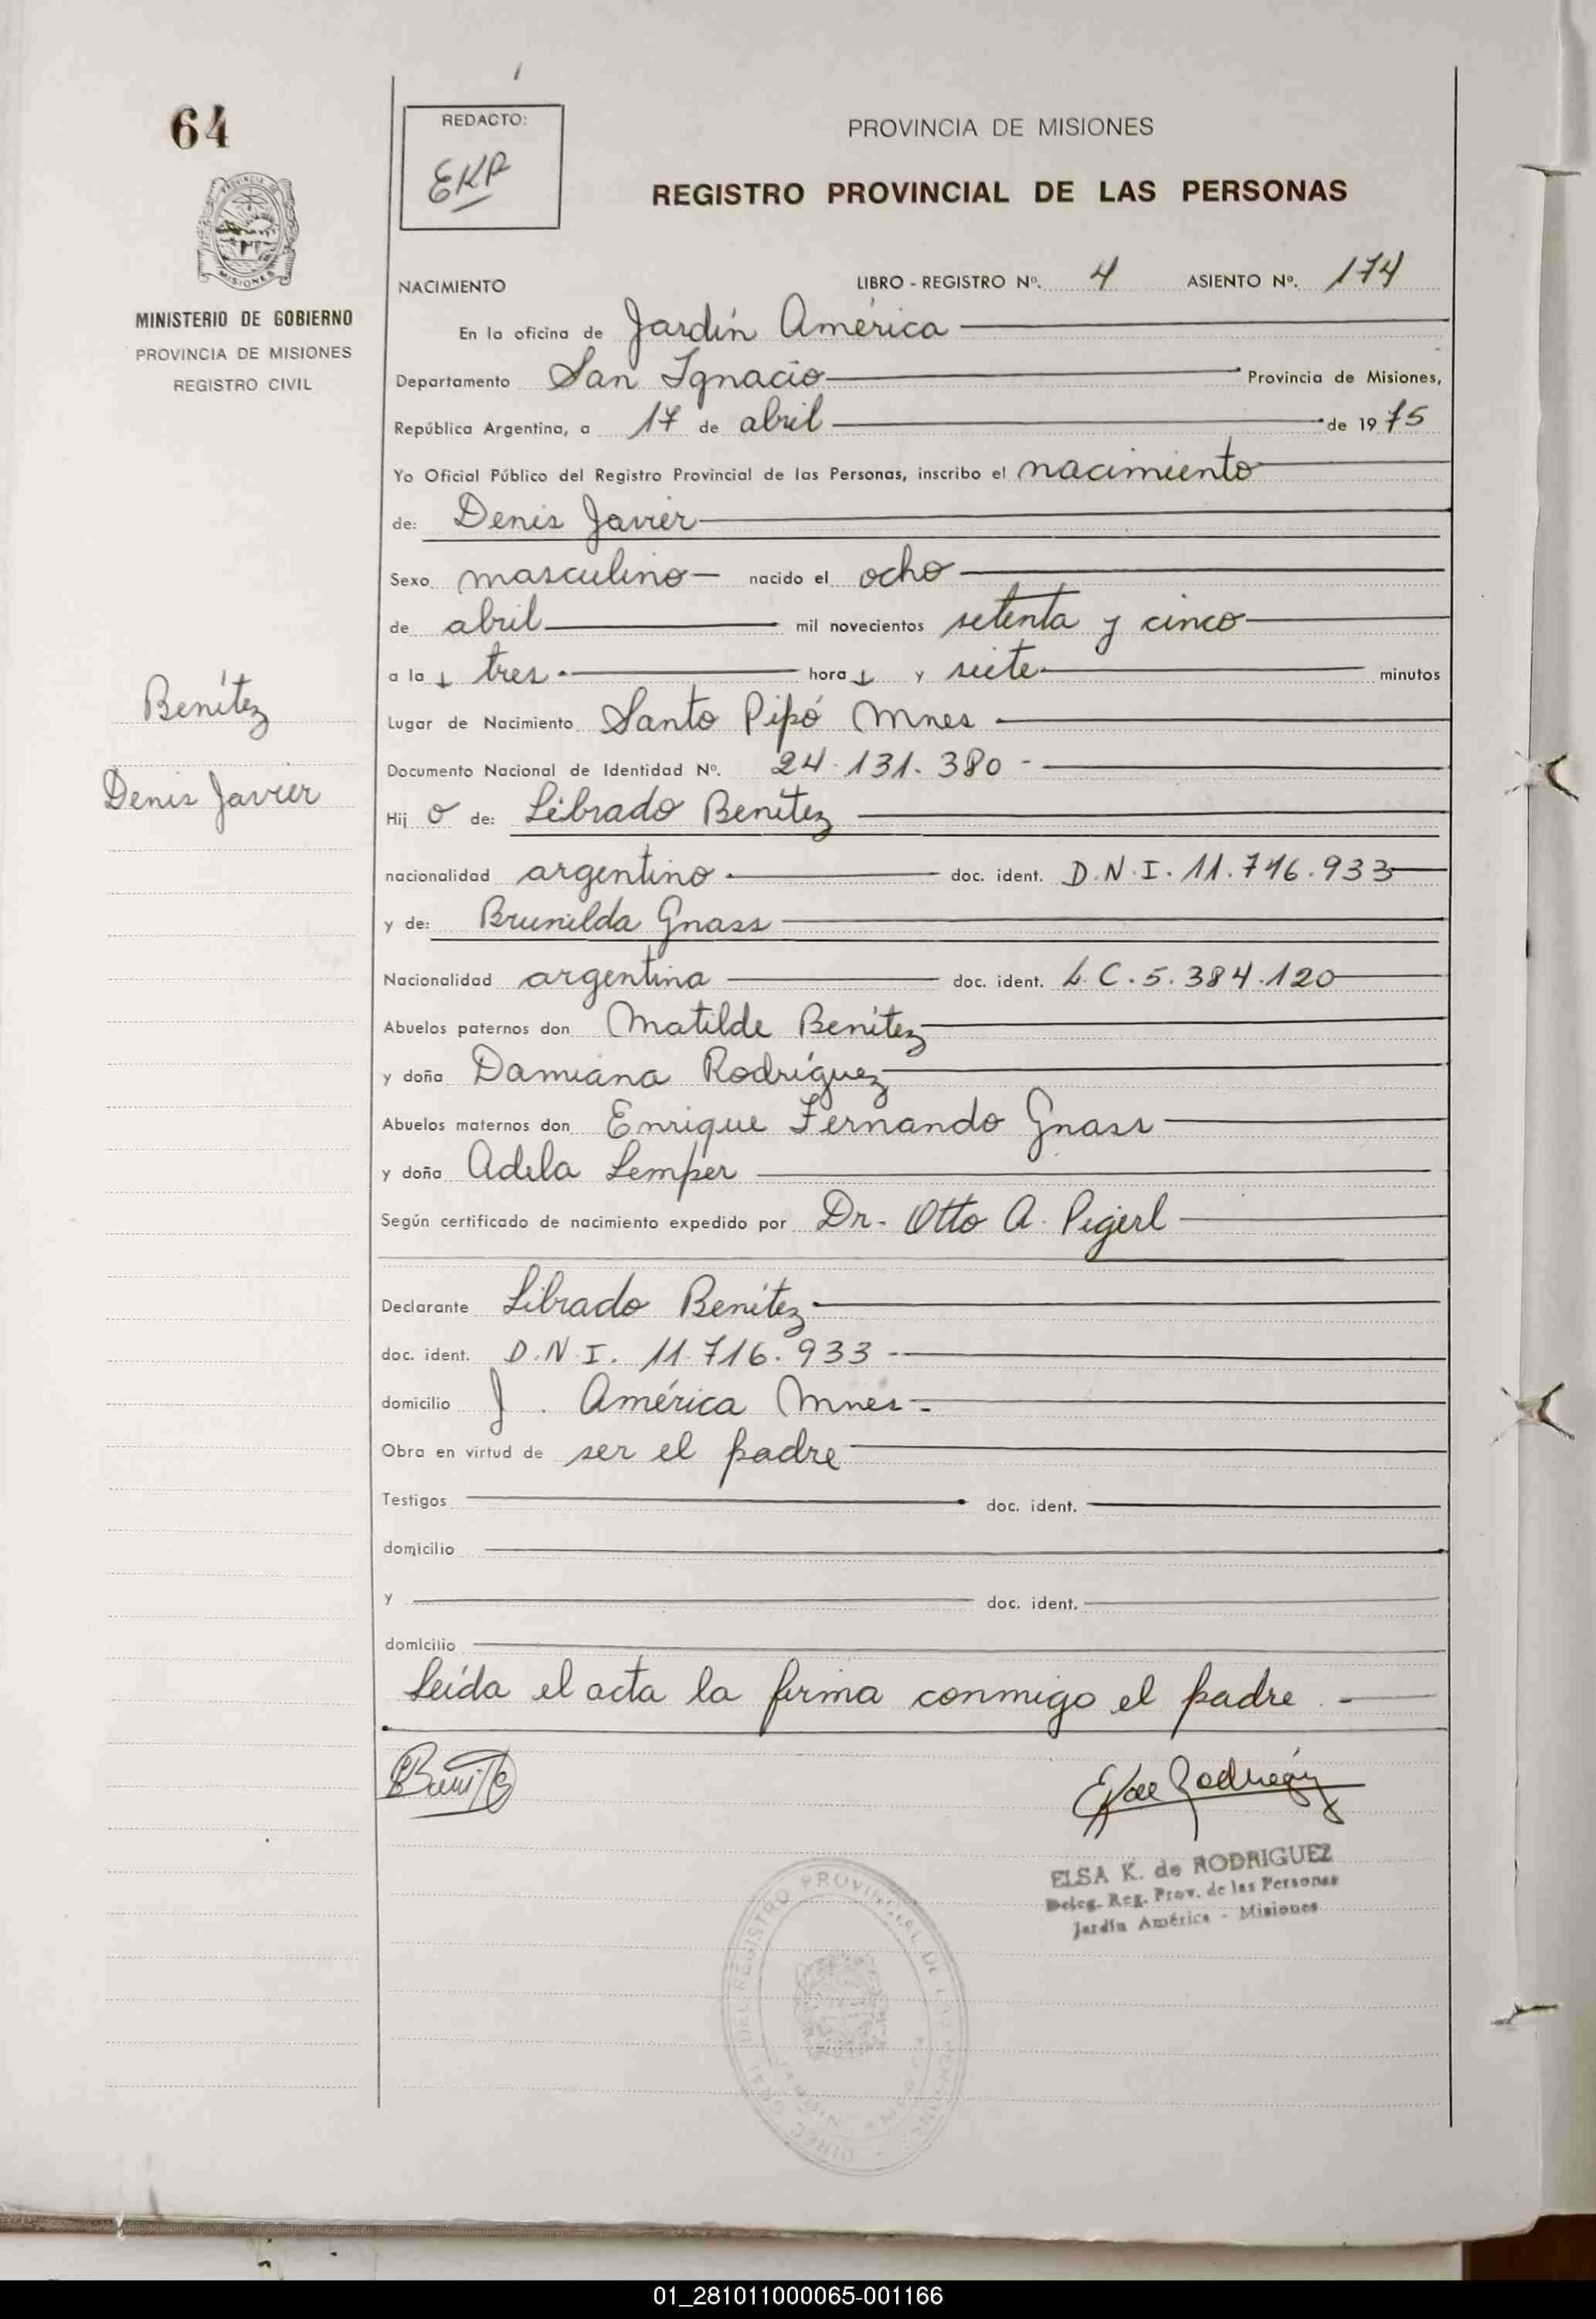 64
REDACTO:
EKR
PROVINCIA DE MISIONES
REGISTRO PROVINCIAL DE LAS PERSONAS
MINISTERIO DE GOBIERNO
PROVINCIA DE MISIONES
REGISTRO CIVIL
NACIMIENTO LIBRO - REGISTRO Nº. 4 ASIENTO Nº. 174
En la oficina de Jardín América
Departamento San Ignacio Provincia de Misiones,
República Argentina, a 17 de abril de 1975
Yo Oficial Público del Registro Provincial de las Personas, inscribo el nacimiento
de: Denis Javier
Sexo masculino nacido el ocho
de abril mil novecientos setenta y cinco
a la s tres hora s y siete minutos
Benítez
Lugar de Nacimiento Santo Pipó Mnes
Documento Nacional de Identidad Nº. 24.131.380 -
Denis Javier
Hij o de: Librado Benítez
nacionalidad argentino doc. ident. D.N.I. 11.716.933
y de: Brunilda Gnass
Nacionalidad argentina doc. ident. L.C. 5.384.120
Abuelos paternos don Matilde Benítez
y doña Damiana Rodríguez
Abuelos maternos don Enrique Fernando Gnass
y doña Adela Lemper
Según certificado de nacimiento expedido por Dr. Otto A. Pigerl
Declarante Librado Benítez
doc. ident. D.N.I. 11.716.933 -
domicilio J. América Mnes -
Obra en virtud de ser el padre
Testigos doc. ident.
domicilio
y doc. ident.
domicilio
Leída el acta la firma conmigo el padre. -
ELSA K. de RODRIGUEZ
Deleg. Reg. Prov. de las Personas
Jardín América - Misiones
01_281011000065-001166